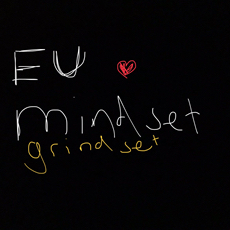 EU
mindset
grindset